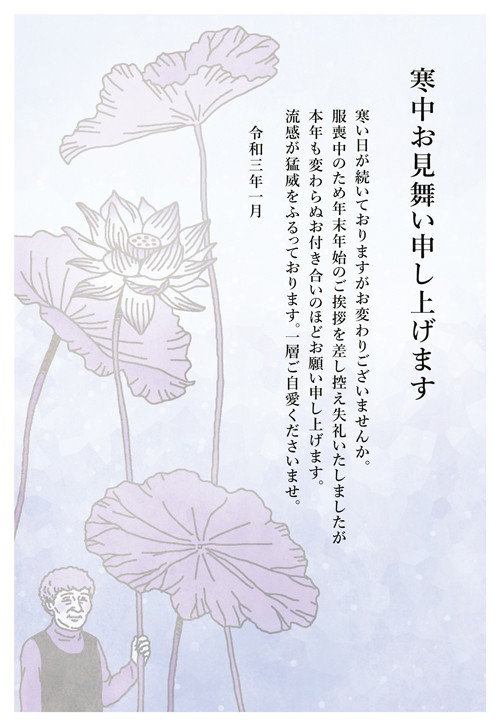 寒中お見舞い申し上げます
寒い日が続いておりますがお変わりございませんか。
服喪中のため年末年始のご挨拶を差し控え失礼いたしましたが
本年も変わらぬお付き合いのほどお願い申し上げます。
流感が猛威をふるっております。一層ご自愛くださいませ。
令和三年一月